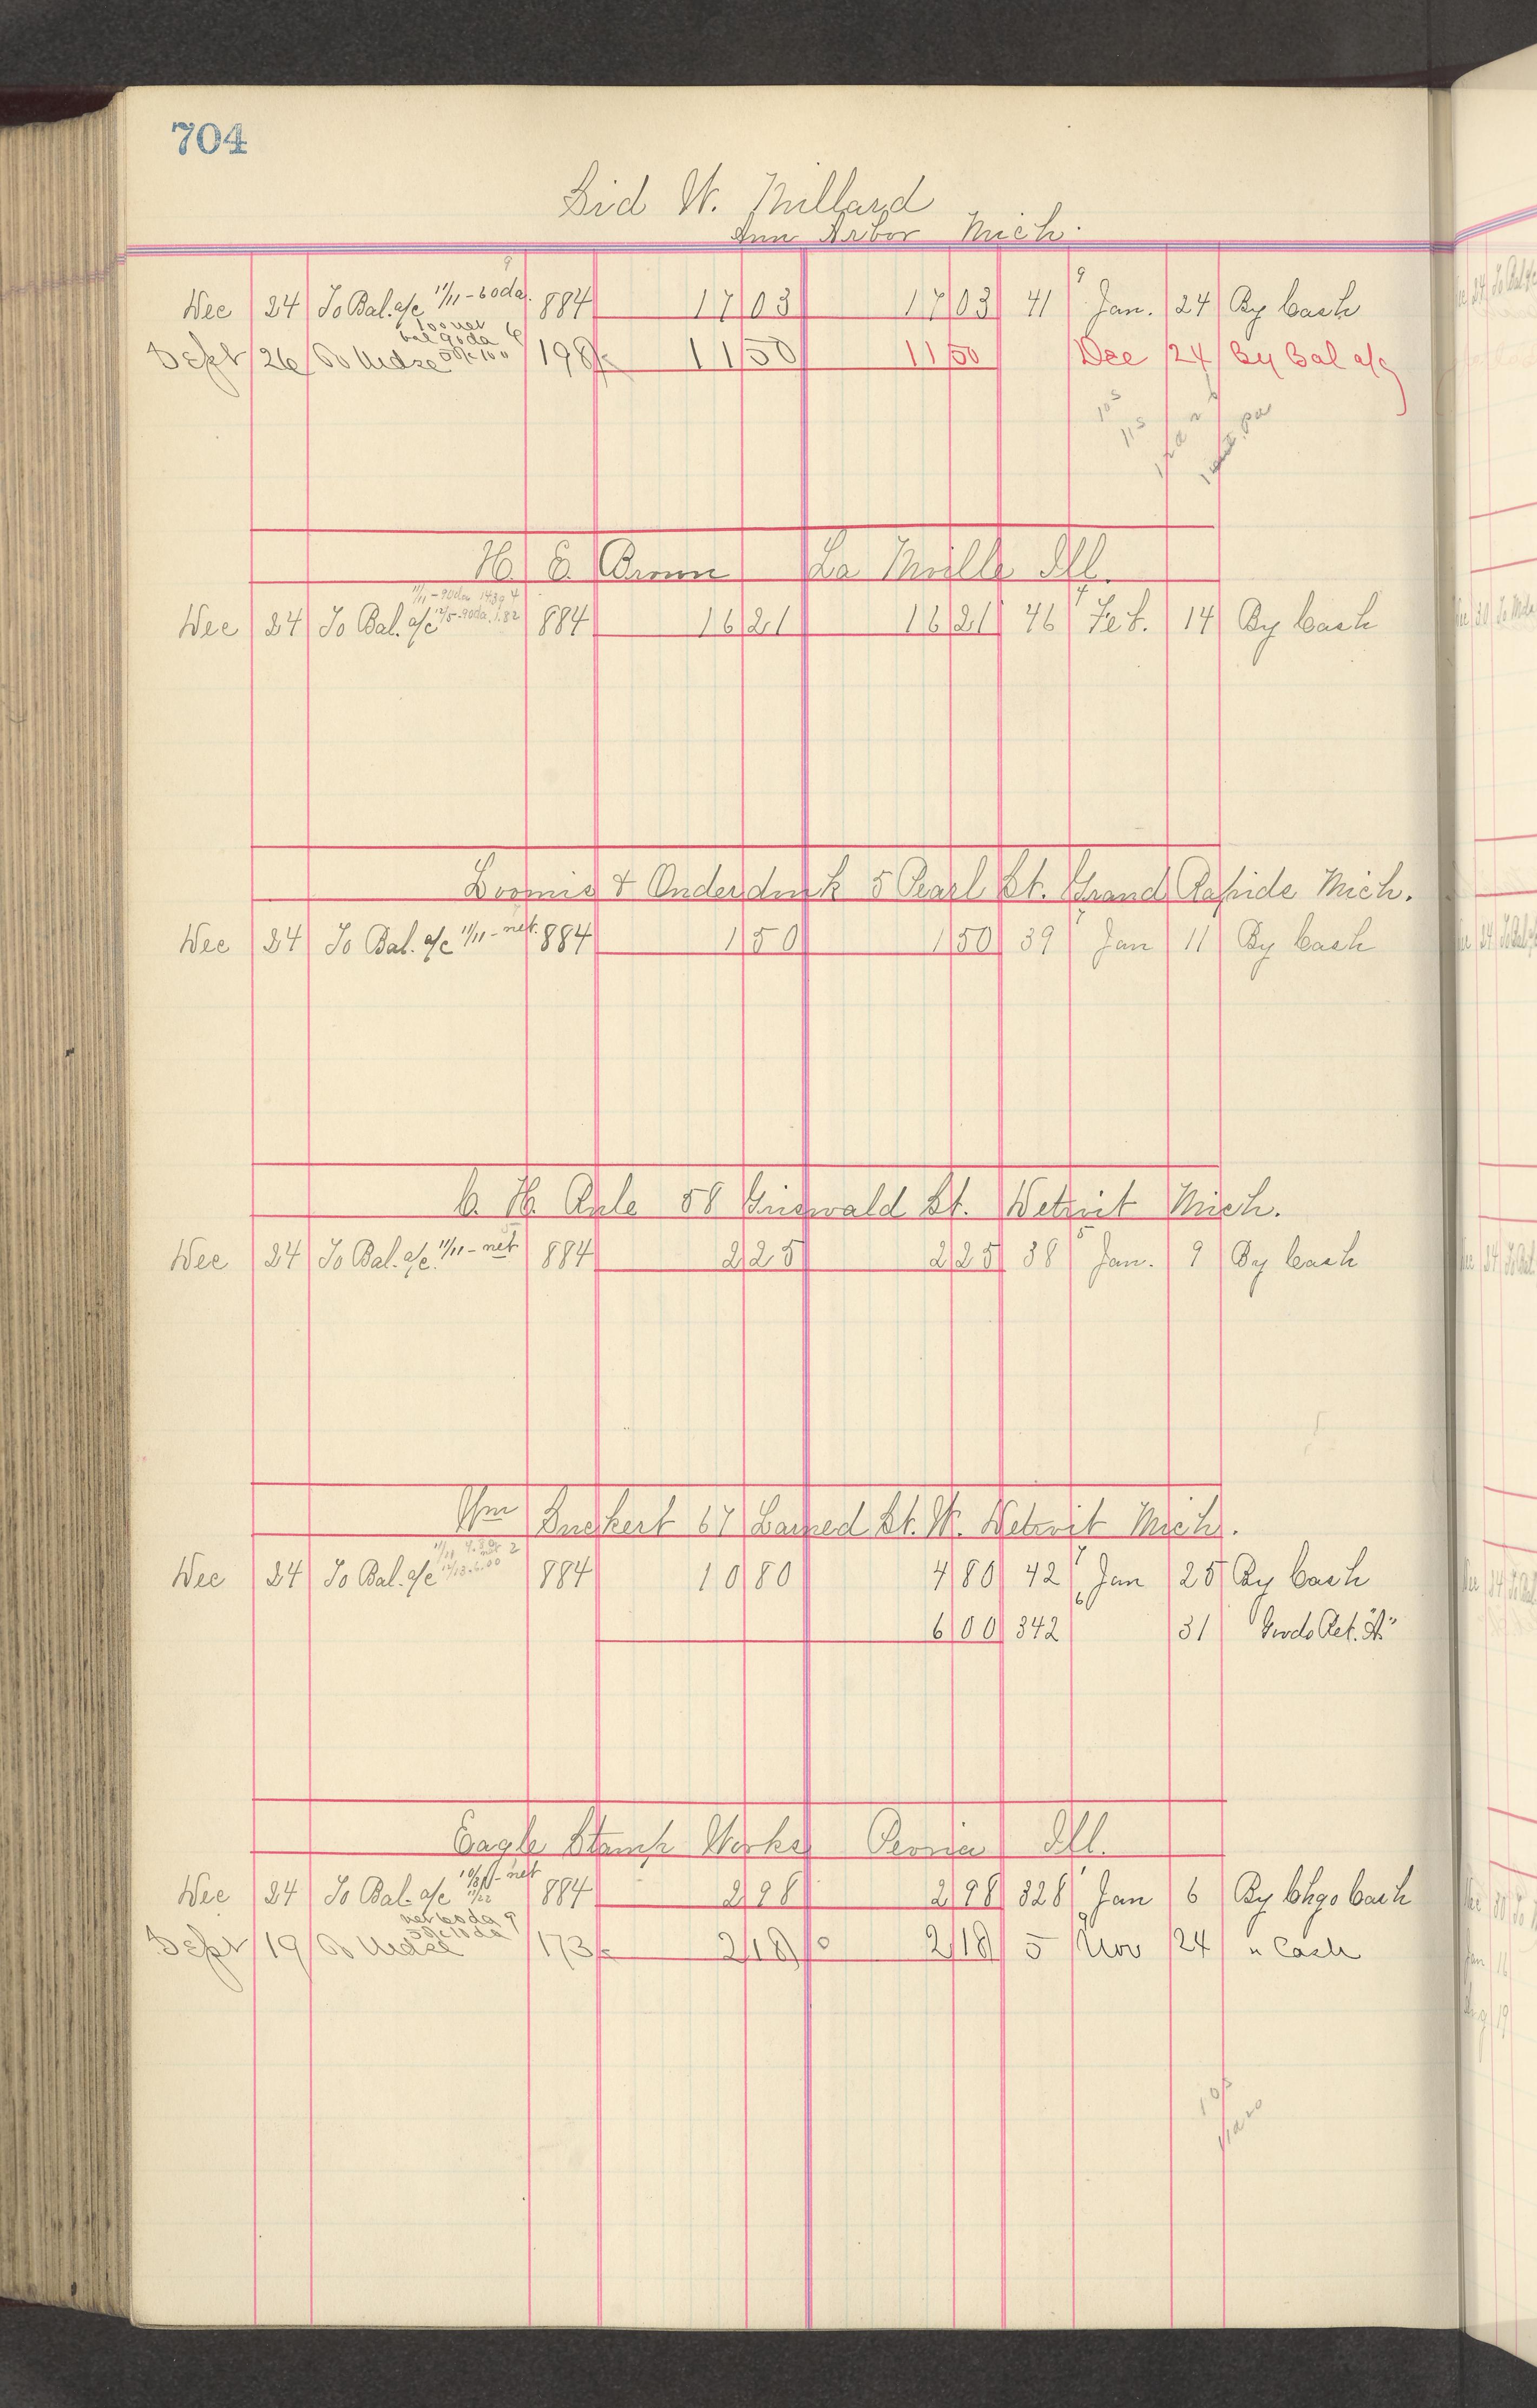 704
Sid W. Millard
Ann Arbor Mich.
9 9
Dec 24 To Bal. a/c 11/11 - 60 da. 884 17 03 17 03 41 Jan. 24 By Cash
100 net
bal 90 da 6
Sept 26 To Mdse 50/10 198 11 50 11 50 Dec 24 By Bal a/c
H. E. Brown La Moille Ill.
11/11 - 90 da 14.39 4
Dec 24 To Bal. a/c 12/5 - 90 da. 1.82 884 16 21 16 21 46 Feb. 14 By Cash
Loomis & Onderdonk 5 Pearl St. Grand Rapids Mich.
Dec 24 To Bal. a/c 11/11 - net. 884 1 50 1 50 39 Jan 11 By Cash
58 Griswald St. Detroit Mich.
Dec 24 To Bal. a/c. 11/11 - net 884 2 25 2 25 38 Jan. 9 By Cash
Wm 67 Larned St. W. Detroit Mich.
Dec 24 To Bal. a/c 12/13 - 6.00 884 10 80 4 80 42 Jan 25 By Cash
6 00 342 31 " Gwds Ret. "A"
Eagle Stamp Works Peoria Ill.
Dec 24 To Bal. a/c 11/22 net 884 2 98 2 98 328 Jan 6 By Chgo Cash
net 60 da 9
Sept 19 To Mdse 173 2 18 2 18 5 Nov 24 " Cash